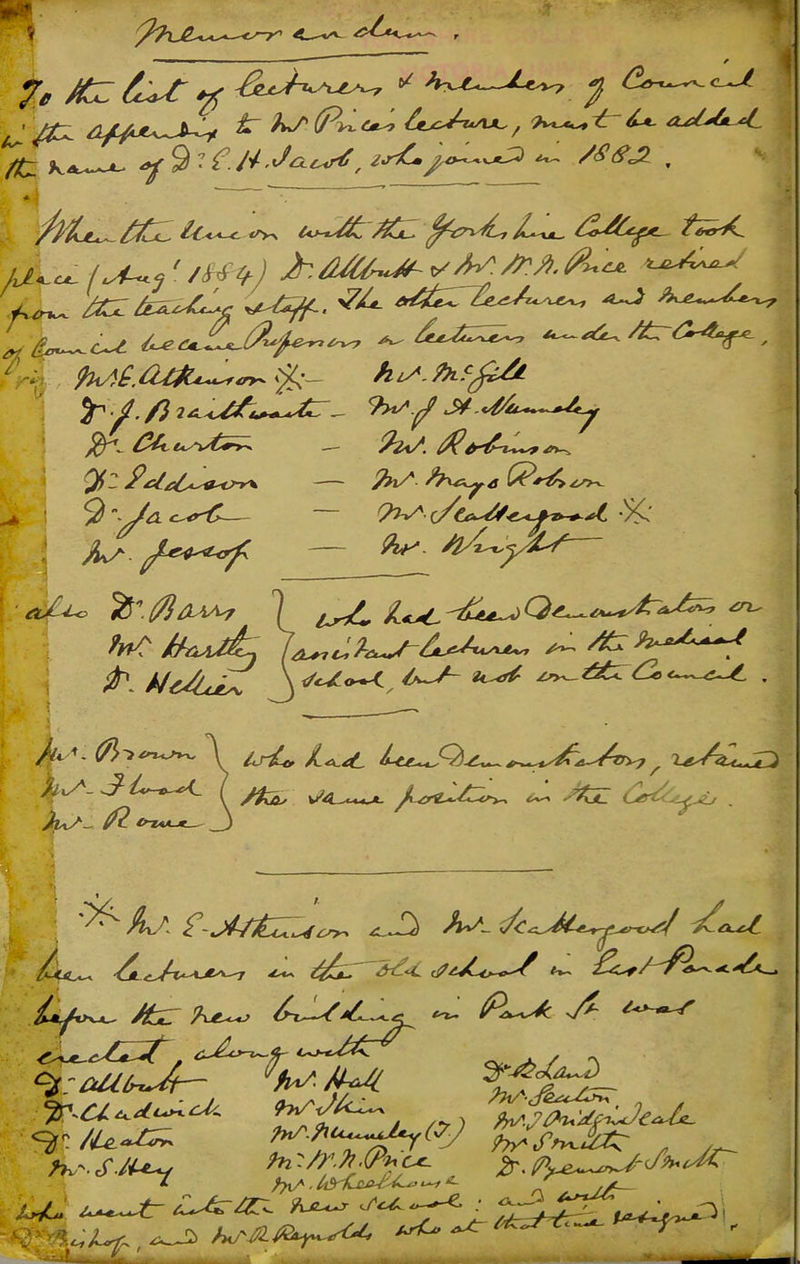 Memorandum.
To the list of Lecturers & Members of Council
in the appendix to Mr Price's lecture, must be added
the name of Dr. E. H. Jacob, who joined in 1882.
When the Union with the Yorkshire College took
place (Augt 1884) Dr. Allbutt & Mr. W. N. Price retired
from the teaching staff. The other Lecturers and Members
of Council became Professors or Lecturers under the College,
viz. Mr E. Atkinson ※ – Mr. McGill
Dr. J. Braithwaite – Mr J. A. Nunneley
Dr. Churton – Mr. Robinson
Dr Eddison – Mr. Mayo Robson
Dr. Jacob – Mr Scattergood ※
Mr. Jessop – Mr. Wright
also Dr. Barrs } who had been Demonstrators or
Mr Hartley assistant Lecturers in the Medical
Dr. Hellier School, but not on the Council.
Mr. Brown } who had been Demonstrators, retained
Mr. Flood the same position in the College.
Mr. Rowe
※ Mr. E. Atkinson and Mr. Scattergood had
been Lecturers in the old school in East Parade
before the new building in Park St was
erected, along with
Dr. Allbutt Mr. Hall
Dr. Chadwick
Dr. Heaton Mr. Nunneley (J.) Mr Smith
Mr. S. Hey Mr. W. N. Price Dr. Pyemont Smith
Mr. Wheelhouse
who went into the new school: and with
and Mr who at that time resigned.